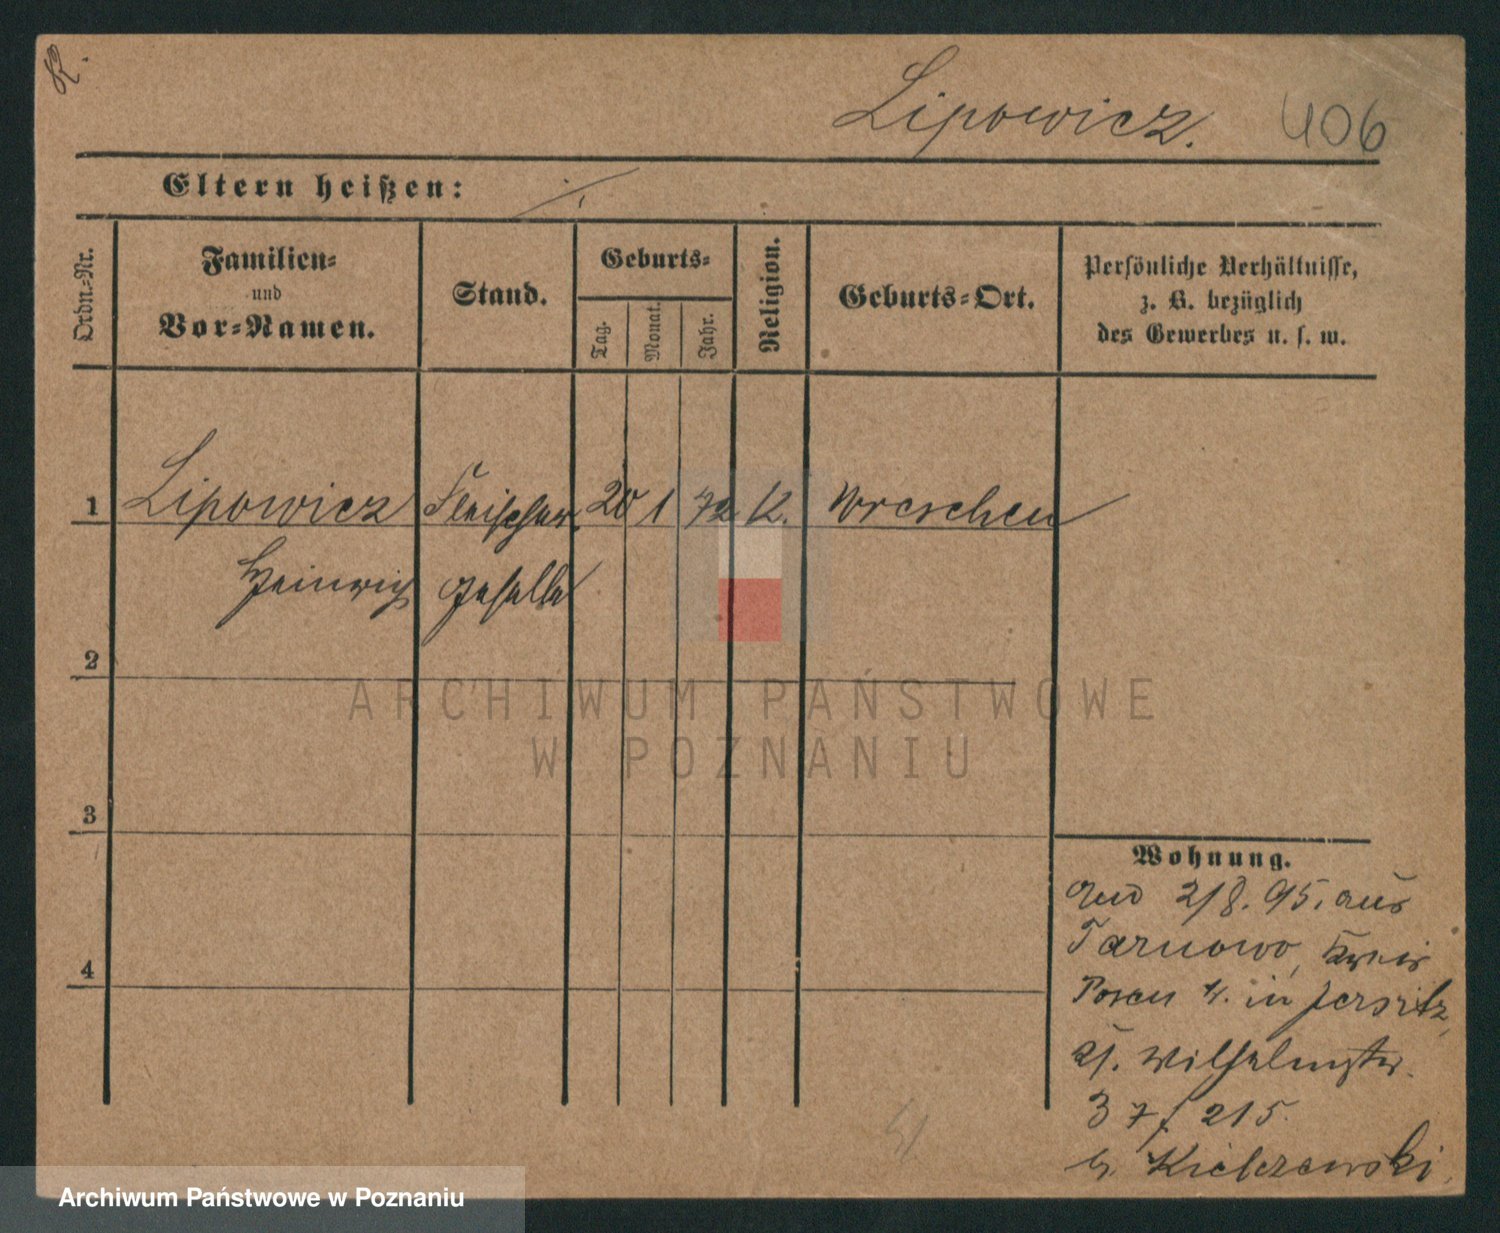 K.
Lipowicz. 406
Eltern heißen: ./.
Ordn.-Nr.
Familien-
und
Vor-Namen.
Stand.
Geburts-
Tag.
Monat.
Jahr.
Religion.
Geburts-Ort.
Persönliche Verhältnisse,
z. B. bezüglich
des Gewerbes u. s. w.
1 Lipowicz Fleischer 20 1 72 K. Wreschen
Heinrich geselle
2
3
4
Wohnung.
2/8. 95. aus
Tarnowo, Kreis
Posen in Jersitz,
Wilhelmstr.
37 f 215
b. Kielczewski.
ARCHIWUM PAŃSTWOWE
W POZNANIU
Archiwum Państwowe w Poznaniu